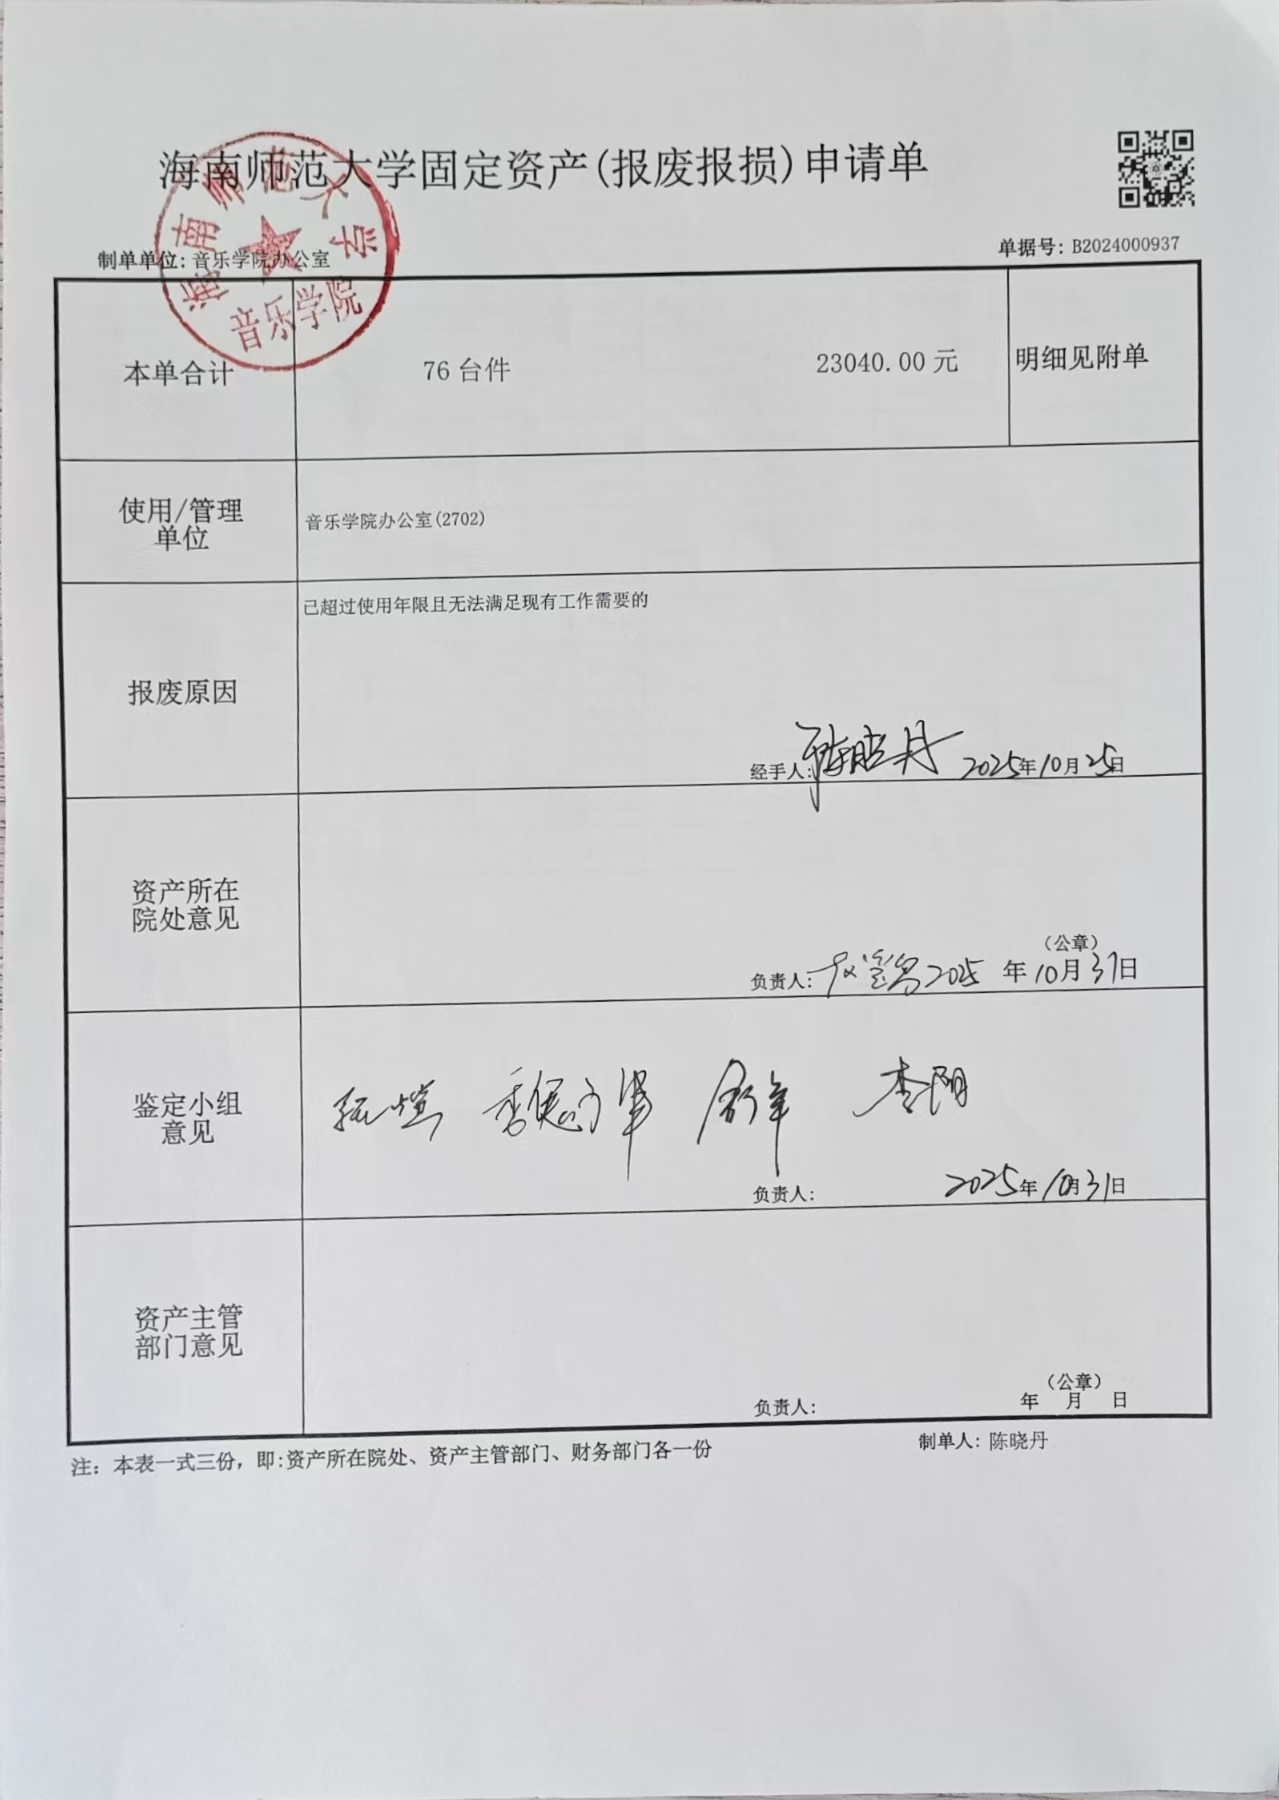 海南师范大学固定资产(报废报损)申请单
海南师范大学
音乐学院
制单单位: 音乐学院办公室
单据号: B2024000937
本单合计
76 台件
23040.00 元
明细见附单
使用/管理
单位
音乐学院办公室(2702)
已超过使用年限且无法满足现有工作需要的
报废原因
经手人: 陈晓丹 2025年10月25日
资产所在
院处意见
(公章)
负责人: 2025 年10月31日
鉴定小组
意见
李阳
负责人: 2025年10月31日
资产主管
部门意见
(公章)
负责人: 年 月 日
注: 本表一式三份, 即:资产所在院处、资产主管部门、财务部门各一份
制单人: 陈晓丹